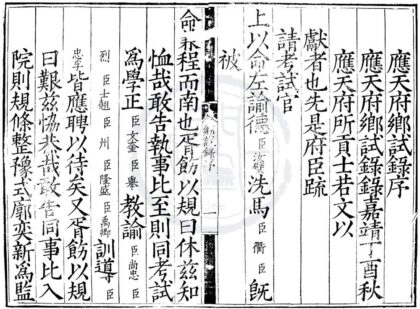 應天府鄉試錄序
應天府鄉試錄錄嘉靖丁酉秋
應天府所貢士若文以
獻者也先是府臣疏
請考試官
上以命左諭德臣汝璧洗馬臣衢臣既
被
一
命兼程而南也疋飭以規曰休茲知
恤哉敢告執事比至則同考試
為學正臣文奎臣舉教諭臣尚忠臣
烈臣士翹臣州臣隆盛臣禹卿訓導臣
忠孚皆應聘以待矣又胥飭以規
曰艱茲恊恭哉敢告同事比入
院則規條整豫式廓奕新為監